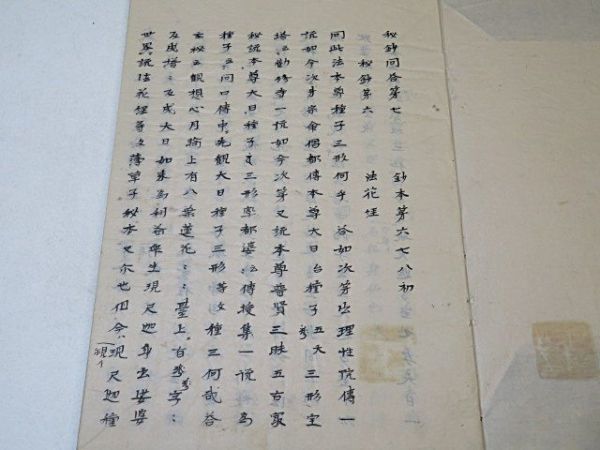 秘鈔問答第七 鈔本第六七八初
秘鈔第六 法花法
問此法本尊種子三形何乎 答如次第出理性院傳一
説如今次第宗命僧都傳本尊大日台種子 五大三形宝
塔 勸修寺一説如今次第又説本尊普賢 三昧五古
秘説本尊大日種子 三形率都婆 傳授集一説
種子 問口傳中先觀大日種子三形等文種三何哉答
秘 觀想心月輪上有八葉蓮花 臺上有 字
反成塔 反成大日如来 利益衆生現尺迦身出娑婆
世界説法花經等文薄草子秘本又尓也但今 現尺迦種